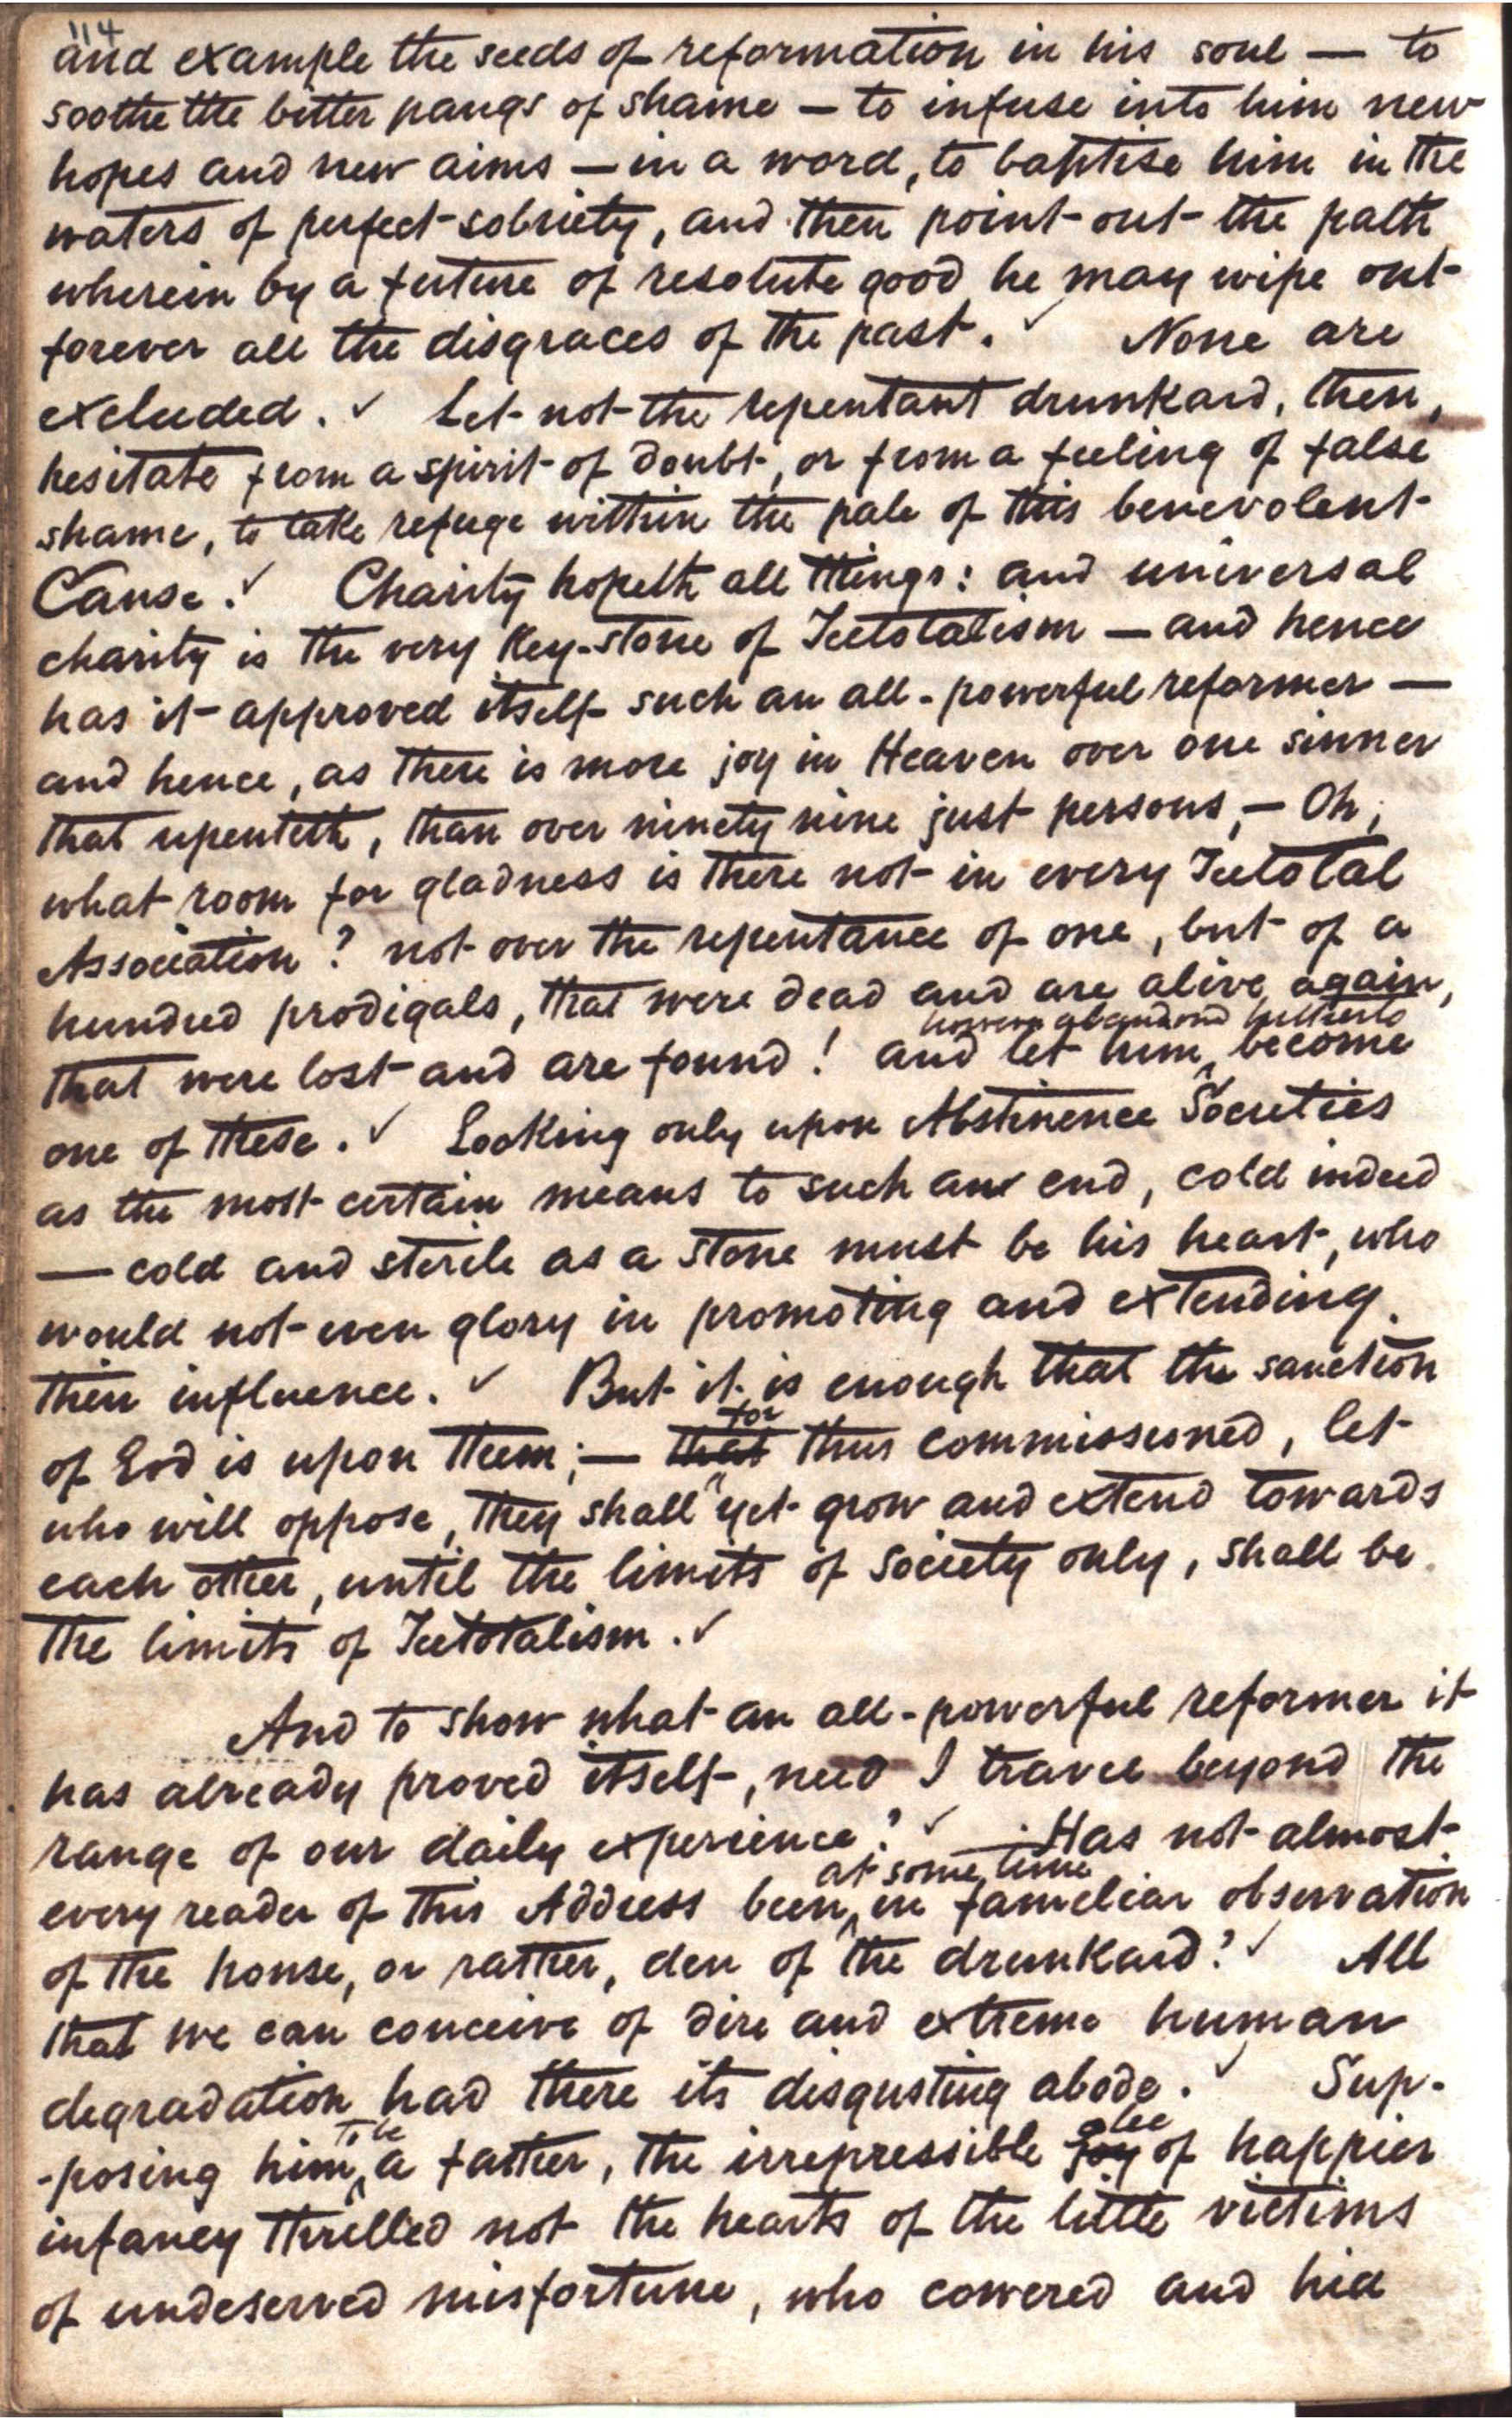 114
and example the seeds of reformation in his soul — to
soothe the bitter pangs of shame — to infuse into him new
hopes and new aims — in a word, to baptise him in the
waters of perfect sobriety, and then point out the path
wherein by a future of resolute good he may wipe out
forever all the disgraces of the past. ✓ None are
excluded. ✓ Let not the repentant drunkard, then,
hesitate from a spirit of doubt, or from a feeling of false
shame, to take refuge within the pale of this benevolent
Cause. ✓ Charity hopeth all things: and universal
charity is the very Key-stone of Teetotalism — and hence
has it approved itself such an all-powerful reformer —
and hence, as there is more joy in Heaven over one sinner
that repenteth, than over ninety nine just persons, — Oh,
what room for gladness is there not in every Teetotal
Association? not over the repentance of one, but of a
hundred prodigals, that were dead and are alive again,
however abandoned hitherto
that were lost and are found! and let him ^ become
one of these. ✓ Looking only upon Abstinence Societies
as the most certain means to such an end, cold indeed
— cold and sterile as a stone must be his heart, who
would not even glory in promoting and extending
their influence. ✓ But it is enough that the sanction
for
of God is upon them; — that ^ thus commissioned, let
who will oppose, they shall yet grow and extend towards
each other, until the limits of society only, shall be
the limits of Teetotalism. ✓
And to show what an all-powerful reformer it
has already proved itself, need I travel beyond the
range of our daily experience? ✓ Has not almost
at some time
every reader of this Address been ^ in familiar observation
of the house, or rather, den of the drunkard? ✓ All
that we can conceive of dire and extreme human
degradation had there its disgusting abode. ✓ Sup-
to be glee
-posing him ^ a father, the irrepressible joy of happier
infancy thrilled not the hearts of the little victims
of undeserved misfortune, who cowered and hid